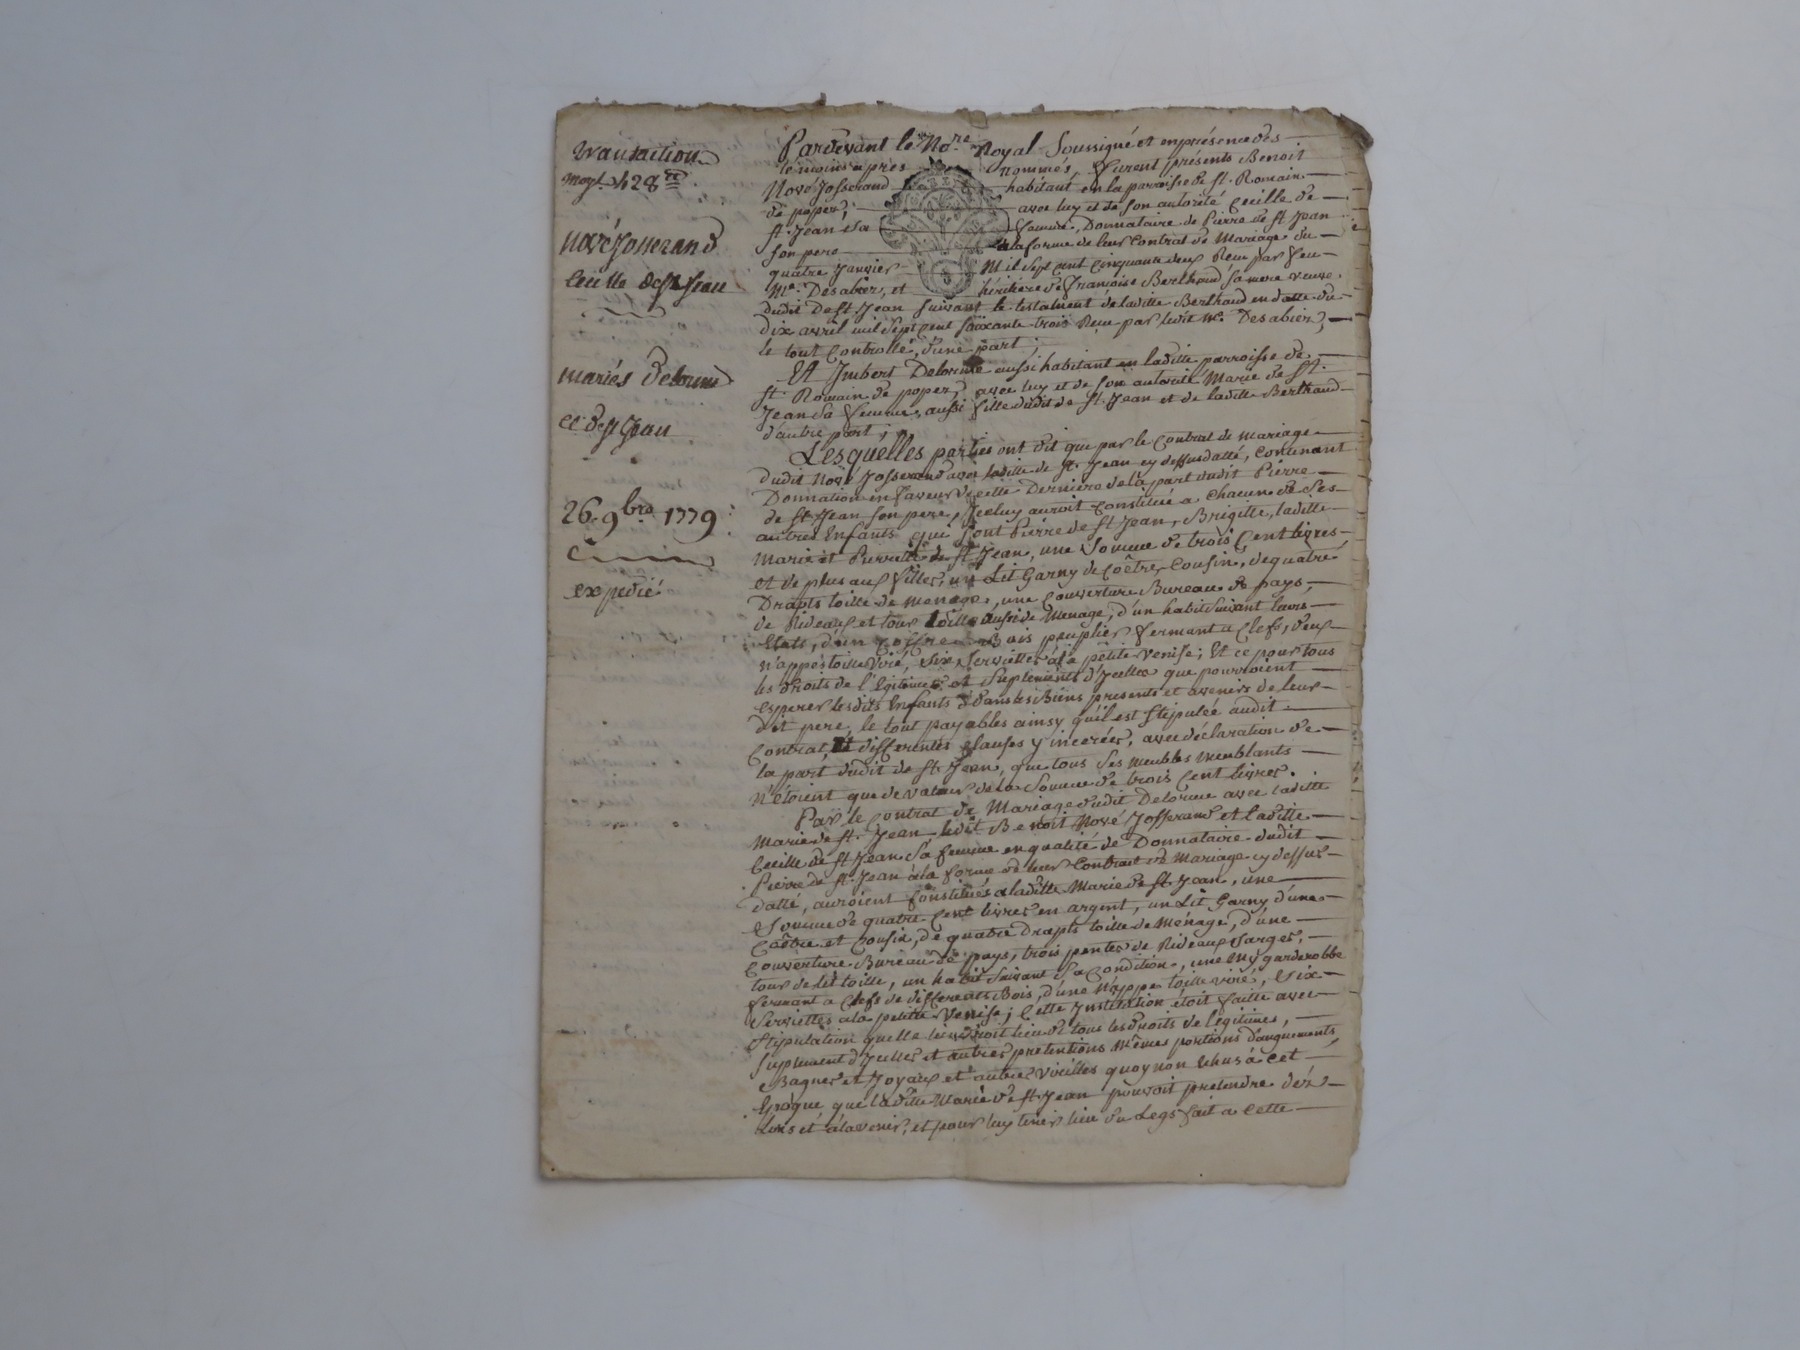 transaction
Nové Josserand
Cecille de St Jean
mariés Delorme
et de St Jean
26. 9bre 1779
expedié
Pardevant le No.re Royal Soussigné et en présence des
témoins apres nommés, furent présents Benoit
Nové Josserand habitant en la paroisse de St. Romain
de popey, avec luy et de son autorité Cecille de
St. Jean sa femme, Donnataire de Pierre de St Jean
son pere a la forme de leur Contrat de Mariage du
quatre Janvier Mil Sept cent Cinquante deux Reçu par feu
Me. Desabier, et héritiere de Françoise Berthaud sa mere veuve
dudit De St Jean suivant le testament de laditte Berthaud en datte du
dix avril mil Sept cent soixante trois Reçu par ledit Me. Desabier,
le tout Controllé, d'une part;
Et Imbert Delorme aussi habitant en laditte parroisse de
St. Romain de popey, avec luy et de son autorité Marie de St.
Jean sa femme, aussi fille dudit de St. Jean et de laditte Berthaud
d'autre part;
Lesquelles parties ont dit que par le Contrat de Mariage
dudit Nové Josserand avec laditte de St. Jean cy dessus datté, Contenant
Donnation en faveur de cette Derniere de la part dudit Pierre
de St Jean son pere, Iceluy auroit Constitué a Chacun de Ses
autres Enfants qui sont Pierre de St Jean, Brigitte, laditte
Marie et Pierrette de St Jean, une Somme de trois Cent livres,
et de plus aux filles, un Lit Garny de Coêtre, Cousin, de quatre
Drapts toille de Menage, une Couverture Bureau de pays,
de Rideaux et tour toille aussi de Menage, d'un habit suivant leurs
Etats, d'un Coffre Bois peuplier fermant a Clefs, deux
nappes toille virée, six Serviettes a la petite Venise; Et ce pour tous
les droits de légitimes et Suplements d'Icelles que pourroient
esperer lesdits Enfants dans les Biens presents et avenirs de leur
dit pere, le tout payables ainsy qu'il est Stipulée audit
Contrat, et differentes clauses y incerées, avec déclaration de
la part dudit de St. Jean, que tous Ses Meubles Meublants
N'étoient que de valeur de la Somme de trois Cent livres.
Par le Contrat de Mariage dudit Delorme avec laditte
Marie de St. Jean ledit Benoit Nové Josserand et laditte
Cecille de St Jean Sa femme en qualité de Donnataire dudit
Pierre de St. Jean a la forme de leur Contrat de Mariage cy dessus
datté, auroient Constitués a laditte Marie de St Jean, une
Somme de quatre Cent livres en argent, un Lit Garny d'une
Coêtre et Cousin, de quatre Drapts toille de Ménage, d'une
Couverture Bureau de pays, trois pentes de Rideaux Sarges,
tour de lit toille, un habit suivant Sa Condition, une My garderobbe
fermant a Clefs de differents Bois, d'une Nappe toille virée, Six
Serviettes a la petitte Venise; Cette Institution étoit faitte avec
Stipulation quelle tiendroit lieu de tous les droits de légitimes,
Suplement d'Icelles et autres pretentions Mêmes portions d'augments,
Bagues et Joyaux et autres virilles quoy non Echus à cet
Epoque que laditte Marie de St Jean pouvoit pretendre dès
Lors et à l'avenir, et pour luy tenir lieu du Legs fait a Cette